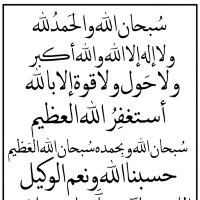 سُبحان الله والحَمدُلله
ولا إله إلا الله والله أكبر
ولا حَول ولا قوة إلا بالله
أستغفِرُ الله العظيم
سُبحان الله وبحمده سُبحان الله العَظيم
حسبنا الله ونعم الوكيل